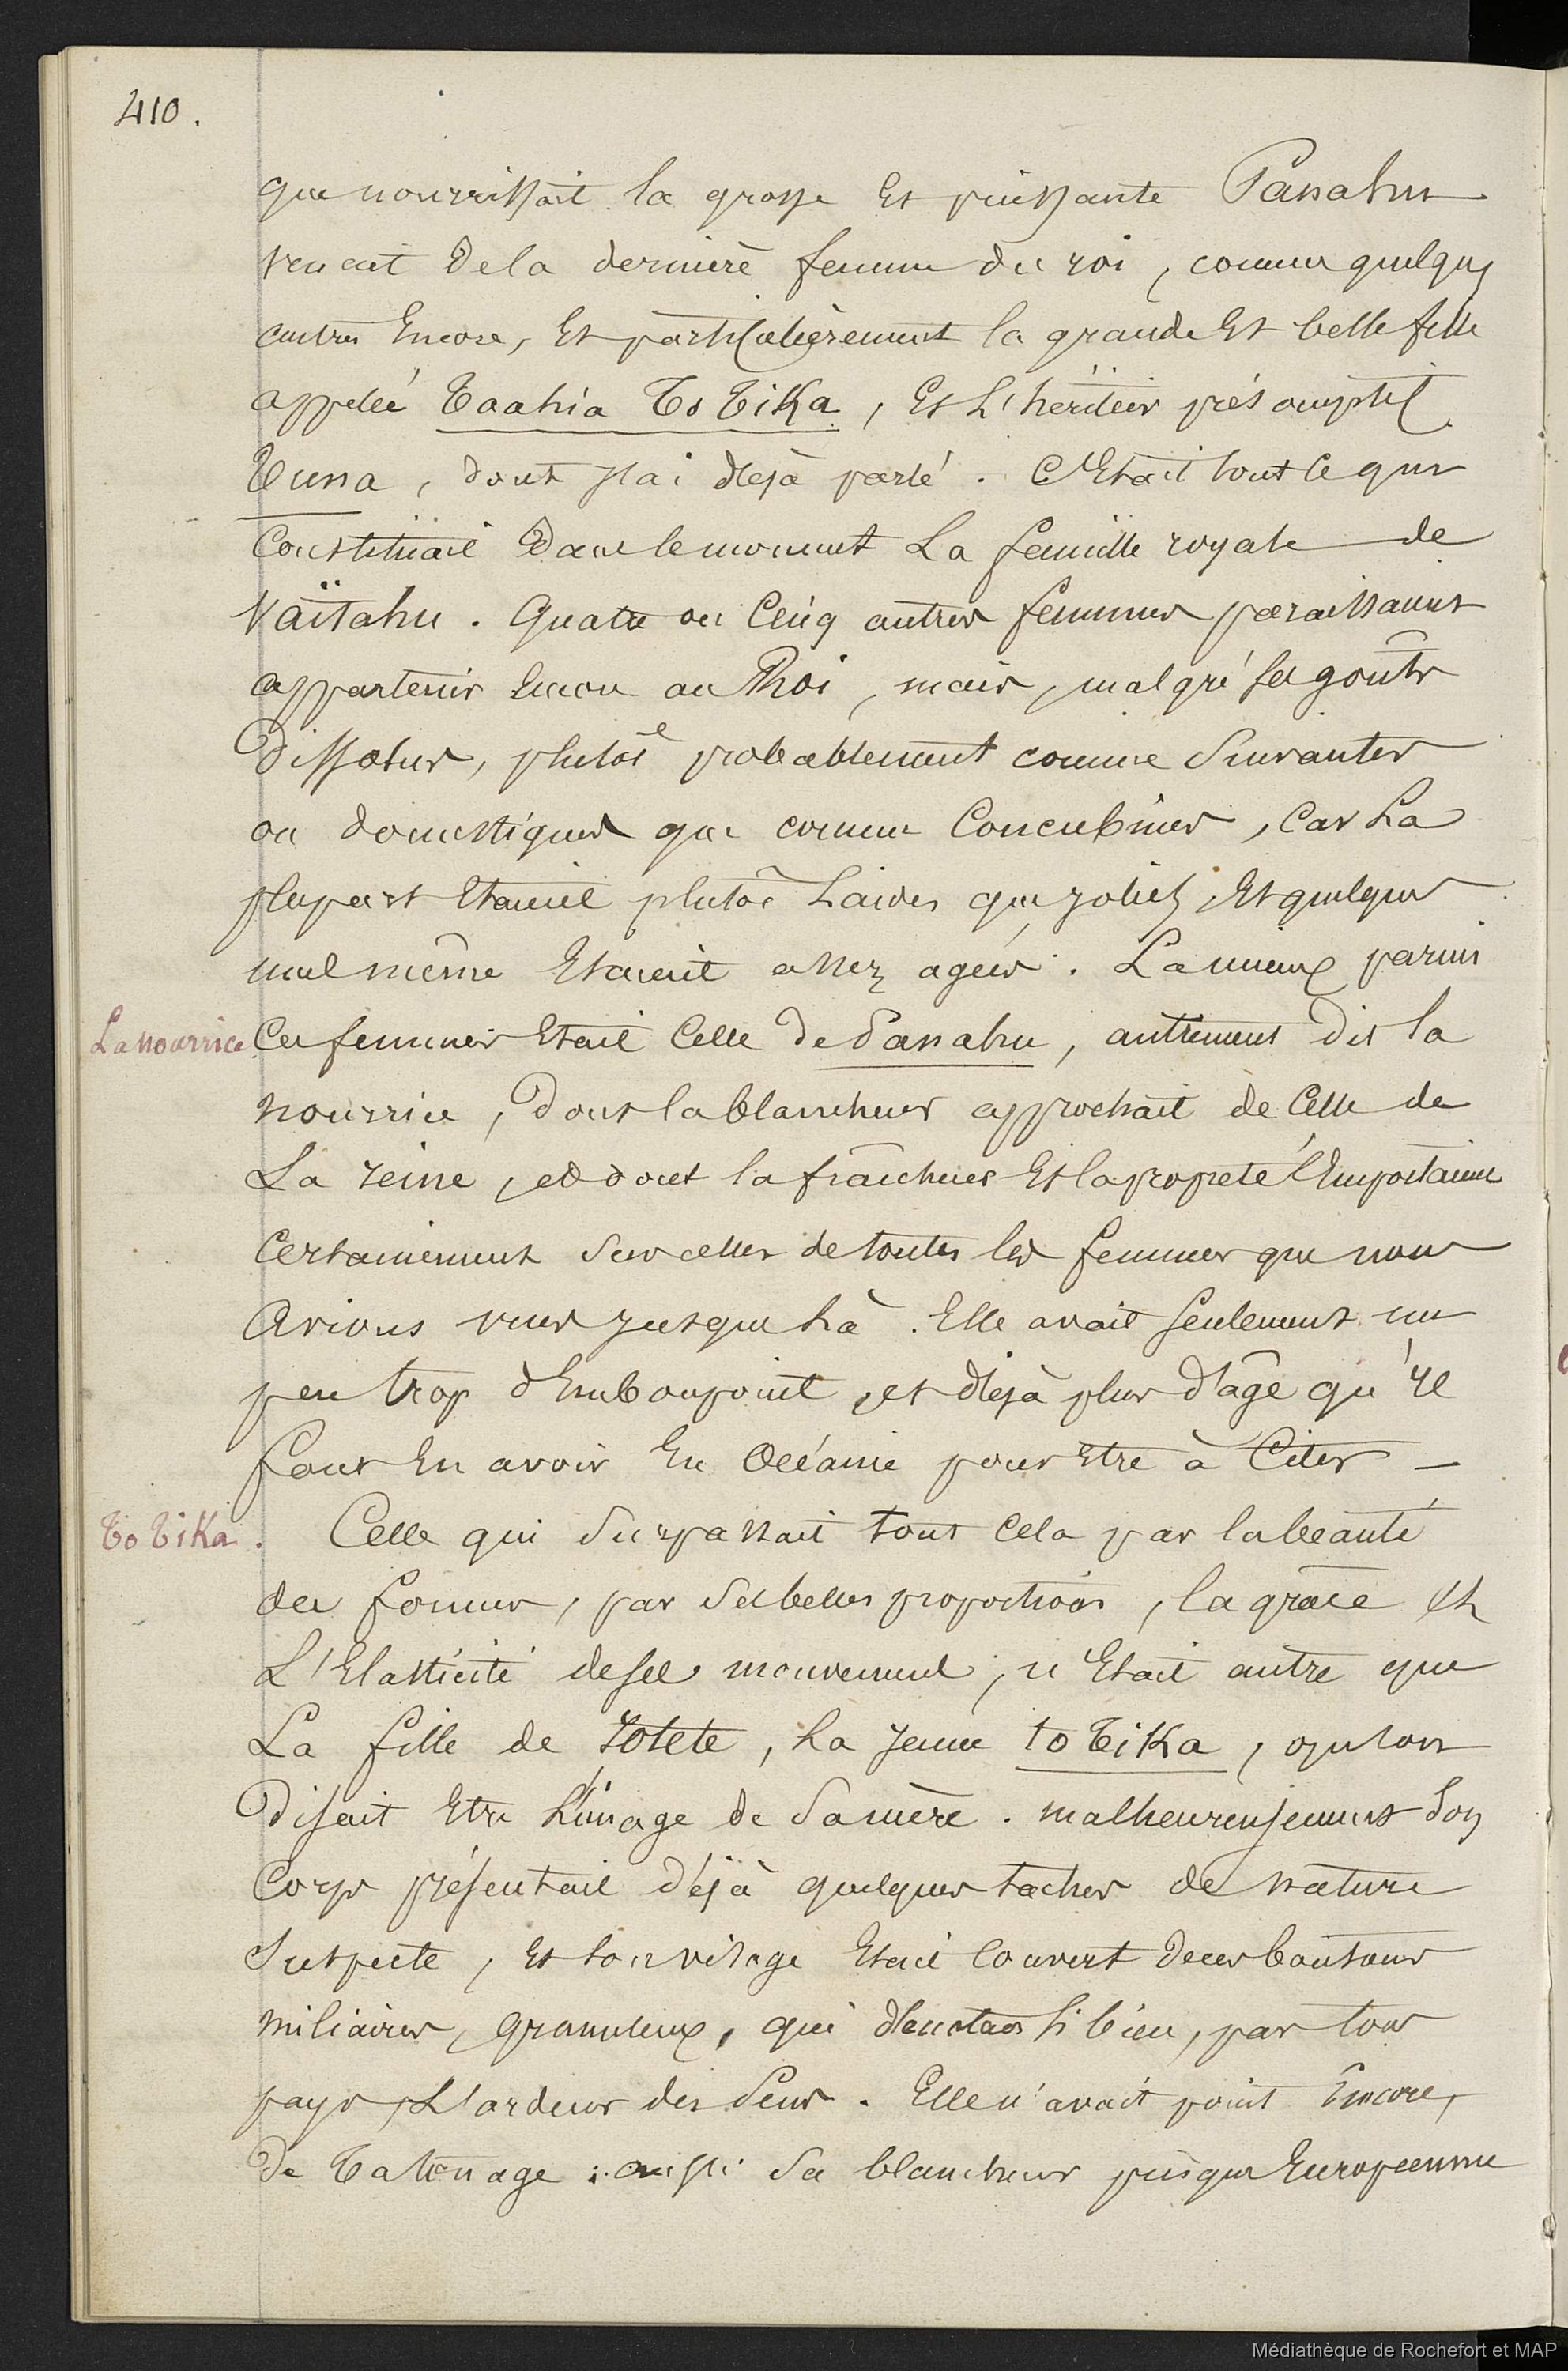 410.
que nourrissait la grosse et puissante Panahu
venait de la dernière femme du roi, comme quelques
autres encore, et particulièrement la grande et belle fille
appelée Taahia To Tika, et l'héritier présomptif
Tuna, dont j'ai déjà parlé. C'était tout ce qui
constituait dans le moment la famille royale de
Vaïtahu. Quatre ou cinq autres femmes paraissaient
appartenir encore au Roi, mais, malgré ses goûts
dissolus, plutôt probablement comme suivantes
ou domestiques que comme concubines, car la
plupart étaient plutôt laides que jolies, et quelques
unes même étaient assez agées. La mieux parmi
La nourrice
ces femmes était celle de Panahu, autrement dit la
nourrice, dont la blancheur approchait de celle de
la reine, et dont la fraîcheur et la propreté l'emportaient
certainement sur celles de toutes les femmes que nous
avions vues jusque là. Elle avait seulement un
peu trop d'embonpoint, et déjà plus d'âge qu'il
faut en avoir en Océanie pour être à citer —
To Tika.
Celle qui surpassait tout cela par la beauté
des formes, par ses belles proportions, la grâce et
l'élasticité de ses mouvements, n'était autre que
la fille de Iotete, la jeune to Tika, qu'on
disait être l'image de sa mère. malheureusement son
corps présentait déjà quelques taches de nature
suspecte, et son visage était couvert de ces boutons
miliaires, granuleux, qui dénotent si bien, par tous
pays, l'ardeur des sens. Elle n'avait point encore,
de tatouage : aussi sa blancheur presque Européenne
Médiathèque de Rochefort et MAP